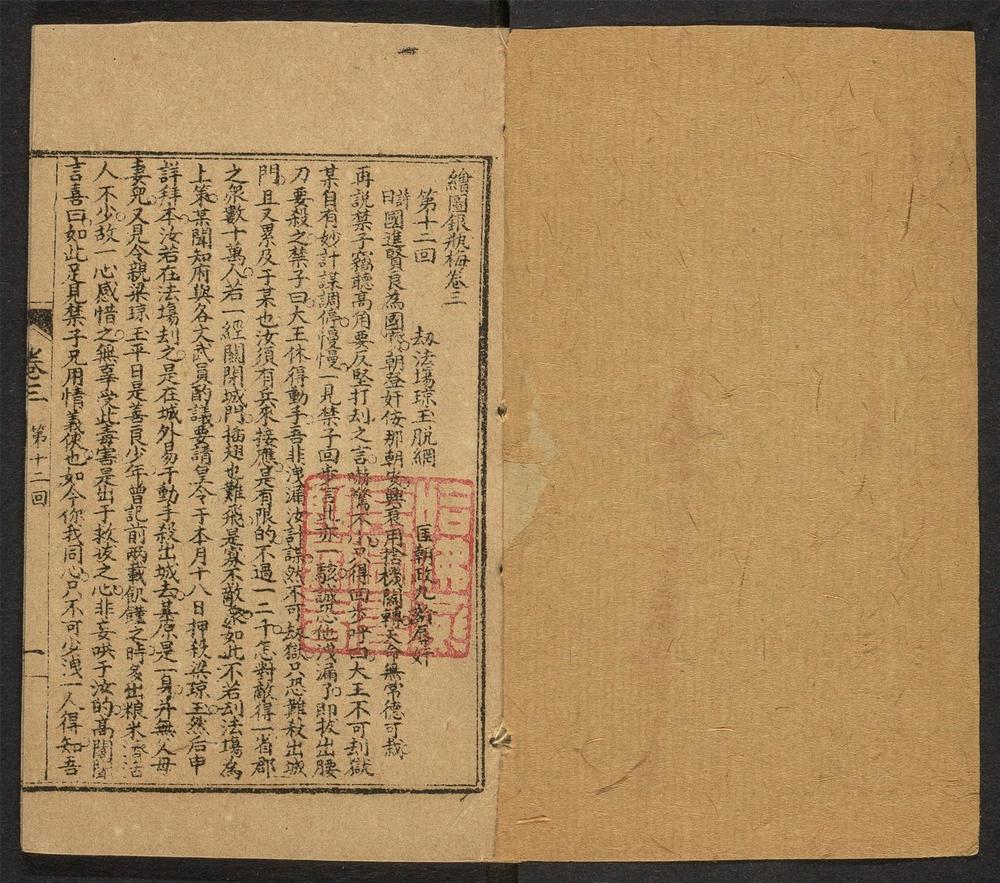 繪圖銀瓶梅卷三
第十二回 劫法場琼玉脫網 匡朝政九弼辱奸
詩曰國進賢良為國家朝登奸佞那朝安興衰用捨機關轉天命無常德可哉
再説禁子竊聽高角要反坚打刦之言嚇驚不小只得回步呼曰大王不可刦獄
某自有妙計謀調停慢慢一見禁子回步言此亦一駭誠恐他洩漏了即拔出腰
刀要殺之禁子曰大王休得動手吾非洩漏汝計謀然不可劫獄只恐難殺出城
門且又累及于某也汝須有兵來接應是有限的不過一二千怎對敵得一省郡
之衆數十萬人若一經關閉城門插翅也難飛是寡不敵衆如此不若刦法塲為
上策某聞知府與各文武員酌議要請皇令于本月十八日押殺梁琼玉然后申
詳拜本汝若在法塲刦之是在城外易于動手殺出城去某原是一身并無父母
妻兒又見令親梁琼玉平日是善良少年曾記前兩載飢饉之時多出粮米濟活
人不少故一心感惜之無辜受此毒害是出于救拔之心非妄哄于汝的高角聞
言喜曰如此足見禁子兄用情義俠也如今你我同心只不可少洩一人得知吾
卷三 第十二回 一